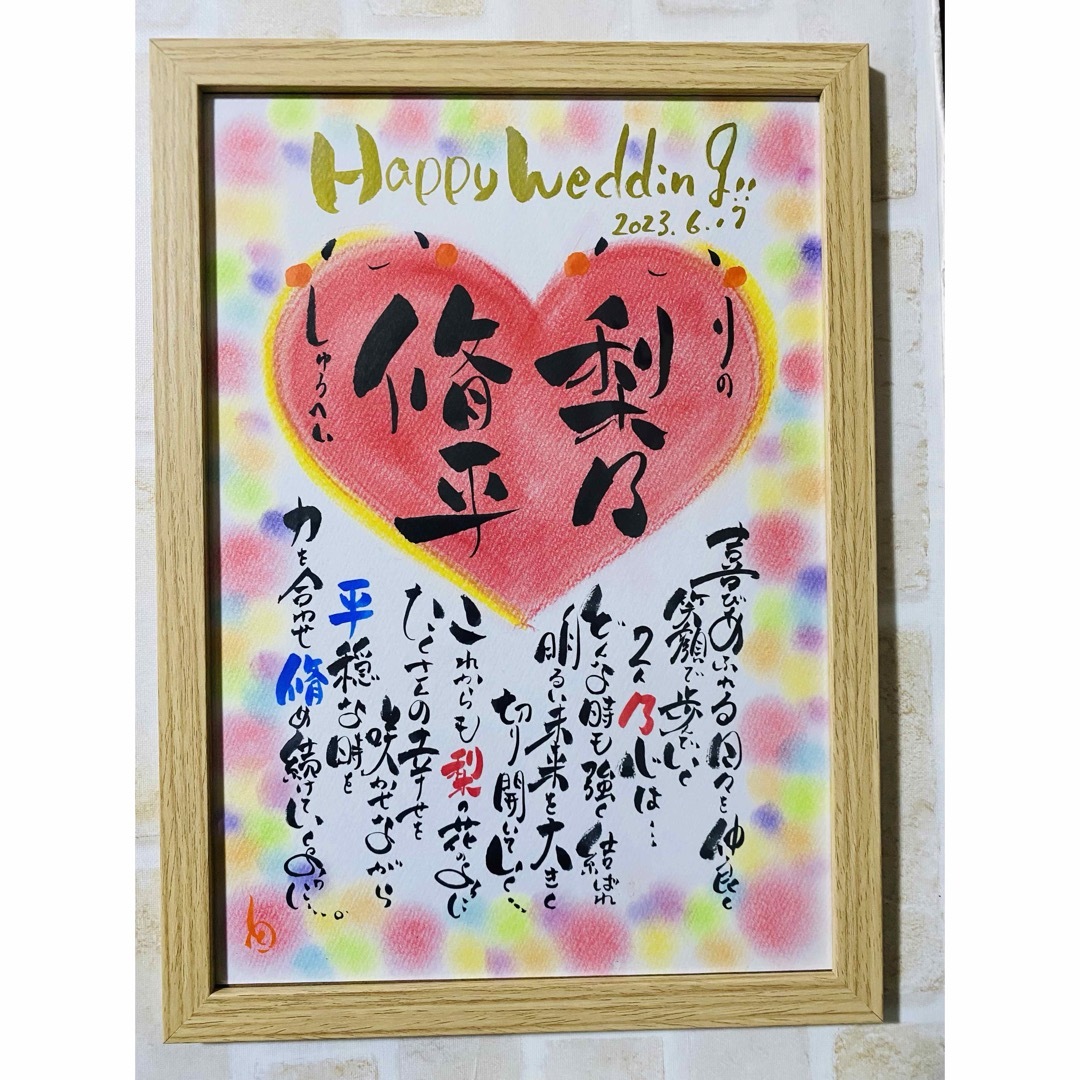 Happy Wedding!!
2023.6.17
りの
梨乃
修平
しゅうへい
喜びあふれる日々を仲良く
笑顔で歩でいく
2人乃心は…
どんな時も強く結ばれ
明るい未来を大きく
切り開いていく…
これからも梨の花のように
たくさんの幸せを
咲かせながら
平穏な時を
力を合わせ脩め続けていくように…。